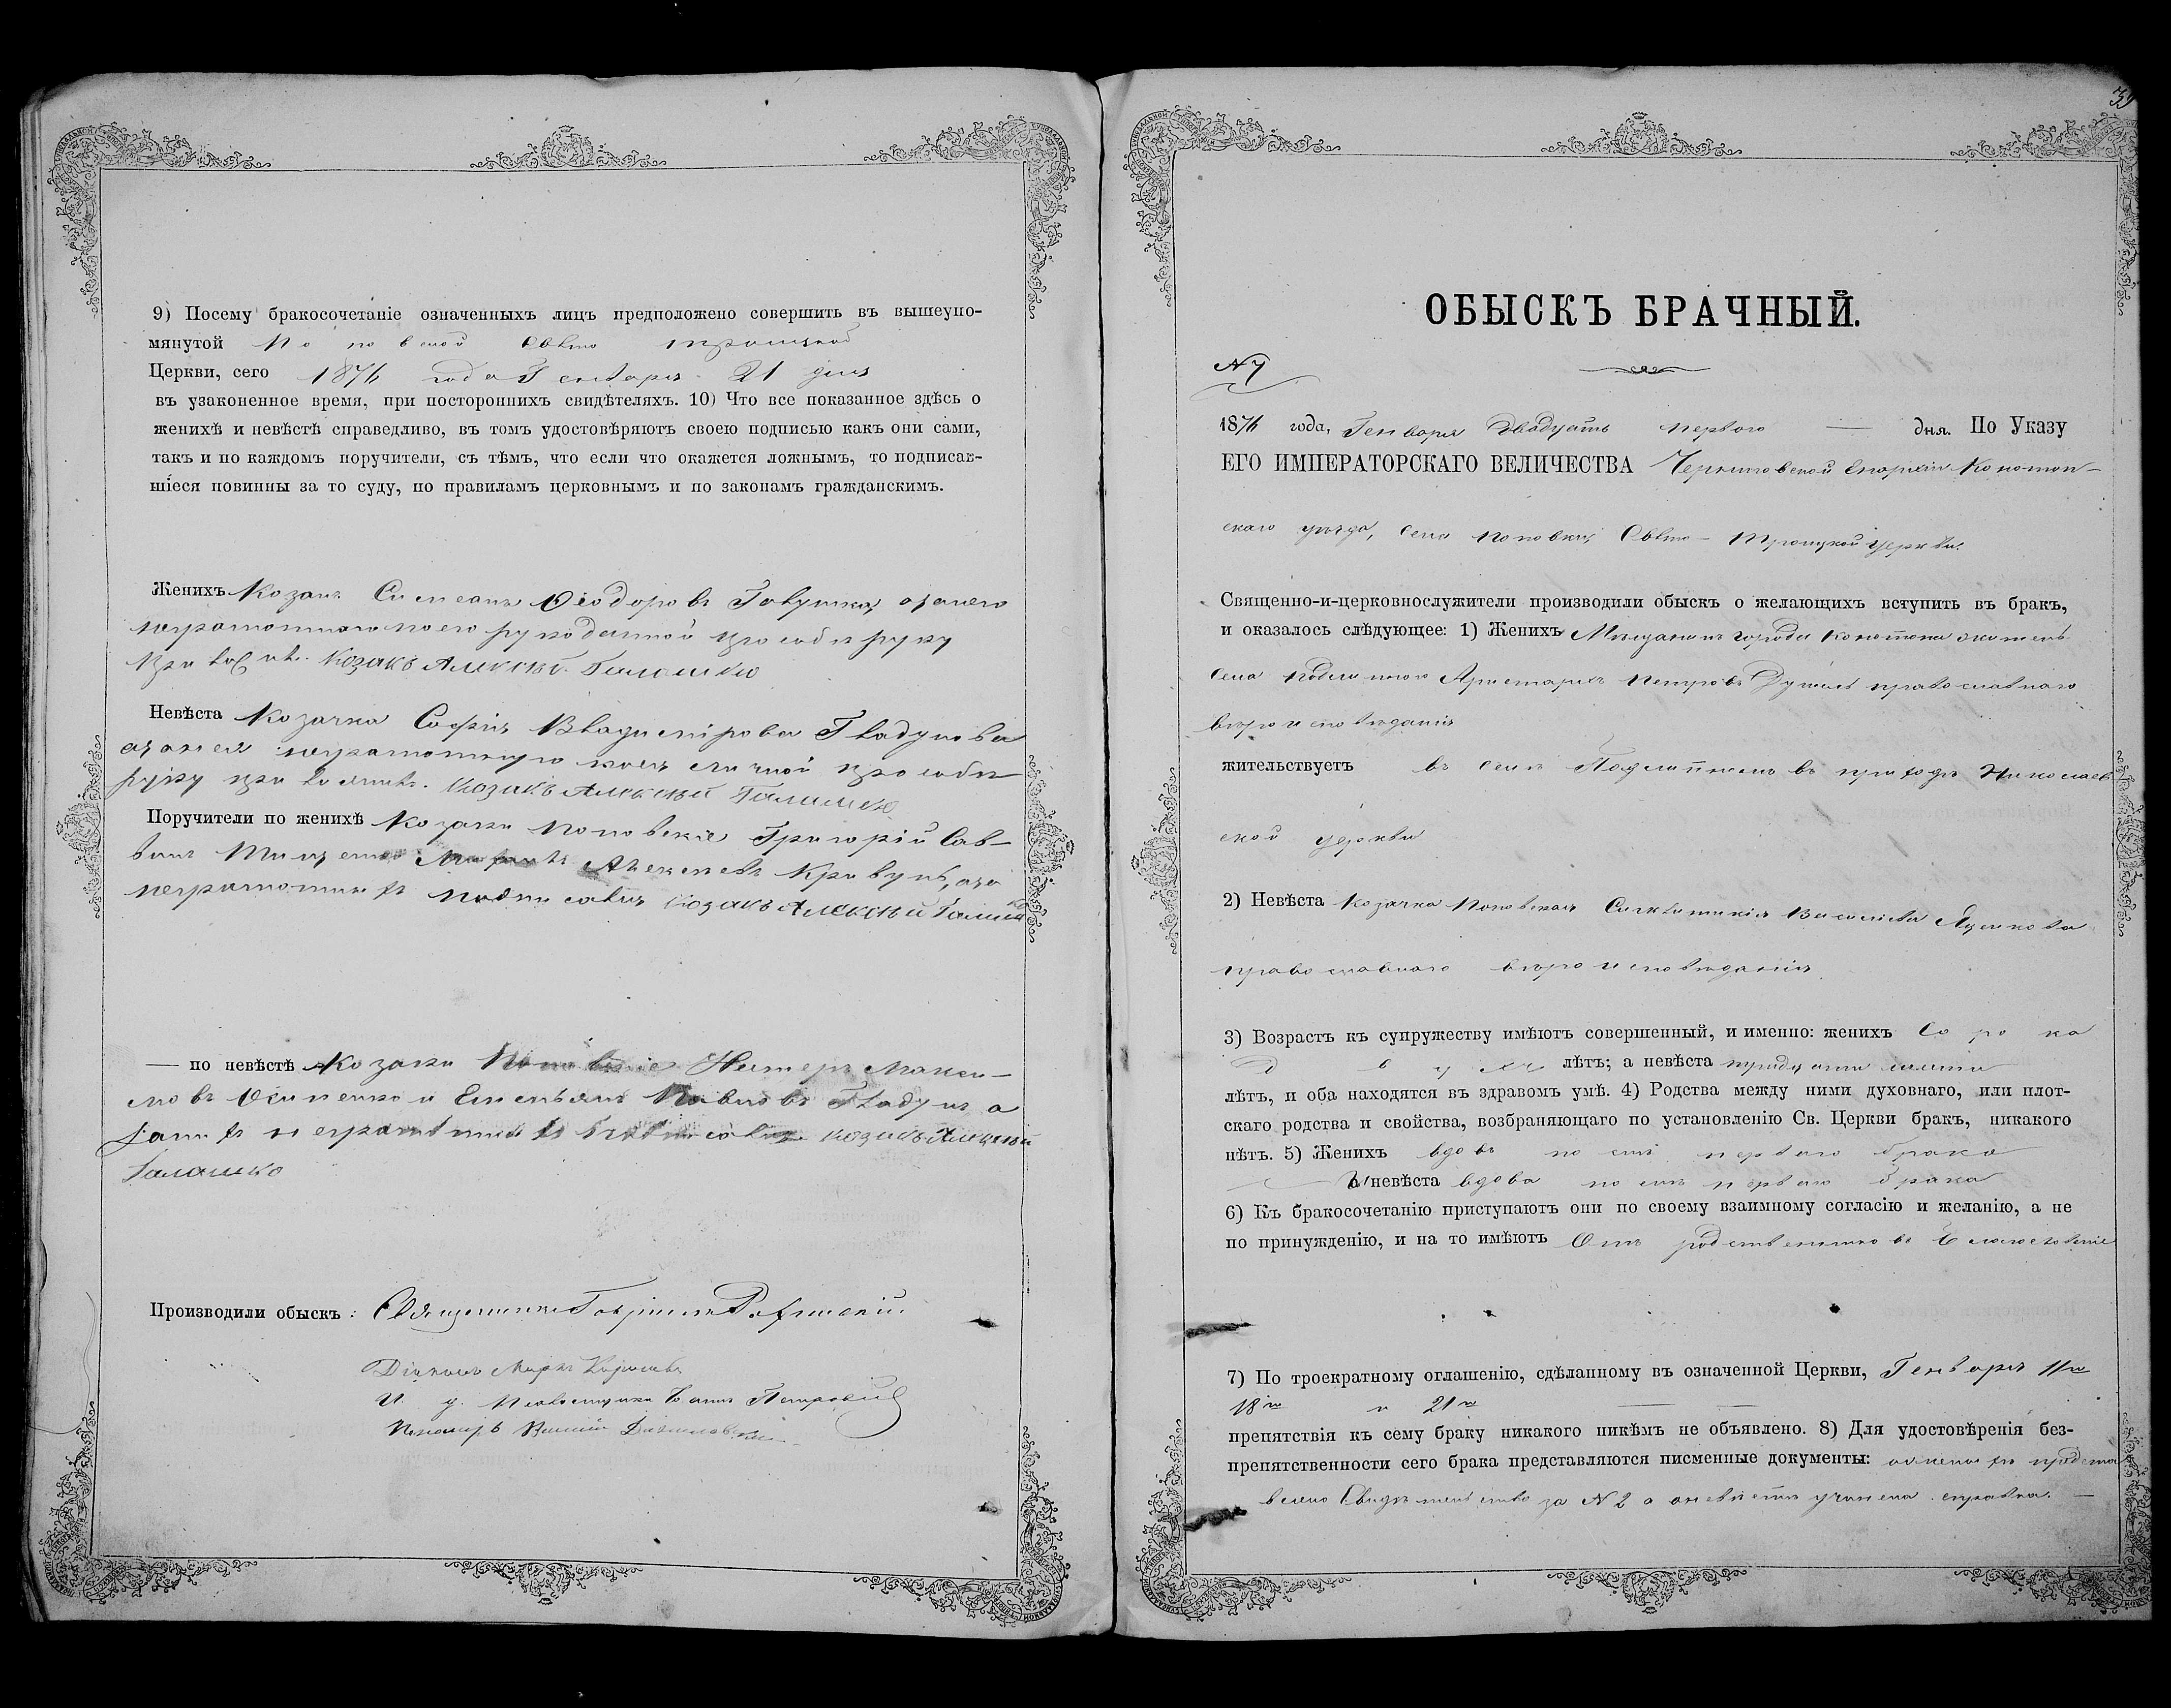 9) Посему бракосочетаніе означенныхъ лицъ предположено совершить въ вышеупо-
мянутой Поповской Свято Троицкой
Церкви, сего 1876 года Генваря 21 дня
въ узаконенное время, при постороннихъ свидѣтеляхъ. 10) Что все показанное здѣсь о
женихѣ и невѣстѣ справедливо, въ томъ удостовѣряютъ своею подписью какъ они сами,
такъ и по каждомъ поручители, съ тѣмъ, что если что окажется ложнымъ, то подписав-
шіеся повинны за то суду, по правиламъ церковнымъ и по законамъ гражданскимъ.
Женихъ Козакъ Симеонъ Ѳеодоровъ а за него
неграмотнаго по его рукоданной прозьбе руку
приложилъ Козакъ Алексѣй Галашко
Невѣста Козачка Софія Владимірова Гладунова
а за нея неграмотную по ея личной прозьбе
руку приложилъ Козакъ Алексѣй Галашко
Поручители по женихѣ Козаки Поповскіе Григорій Сав-
винъ Алексеевъ Кривунъ, а за
неграмотныхъ подписался Козакъ Алексѣй Галашко
— по невѣстѣ Козаки Поповскіе Нестеръ Макси-
мовъ Осипенко и Емельянъ Павловъ Гладунъ а
за нихъ неграмотныхъ подписался козакъ Алексѣй
Галашко
Производили обыскъ: Священникъ Гавріилъ
Діаконъ Маркъ
И. д. Псаломщика
Пономарь
ОБЫСКЪ БРАЧНЫЙ.
№ 7
1876 года, Генваря двадцать перваго — дня. По Указу
ЕГО ИМПЕРАТОРСКАГО ВЕЛИЧЕСТВА Черниговской Епархіи Конотоп-
скаго уѣзда, села Поповки, Свято-Троицкой церкви.
Священно-и-церковнослужители производили обыскъ о желающихъ вступить въ бракъ,
и оказалось слѣдующее: 1) Женихъ Мѣщанинъ города Конотопа житель
села Подлипного Аристархъ Петровъ православнаго
вѣроисповѣданія
жительствуетъ въ селѣ Подлипномъ въ приходѣ Николаев
ской церкви
2) Невѣста Козачка Поповская Синклитикія Василіева Яценкова
православнаго вѣроисповѣданія
3) Возрастъ къ супружеству имѣютъ совершенный, и именно: женихъ Сорока
двухъ лѣтъ; а невѣста тридцати
лѣтъ, и оба находятся въ здравомъ умѣ. 4) Родства между ними духовнаго, или плот-
скаго родства и свойства, возбраняющаго по установленію Св. Церкви бракъ, никакого
нѣтъ. 5) Женихъ вдовъ послѣ перваго брака
а невѣста вдова послѣ перваго брака
6) Къ бракосочетанію приступаютъ они по своему взаимному согласію и желанію, а не
по принужденію, и на то имѣютъ Отъ родственниковъ благословеніе
7) По троекратному оглашенію, сдѣланному въ означенной Церкви, Генваря 11го
18го и 21го
препятствія къ сему браку никакого никѣмъ не объявлено. 8) Для удостовѣренія без-
препятственности сего брака представляются писменные документы: о женихѣ предста
влено Свидѣтельство за № 2 а о невѣстѣ учинена справка. —